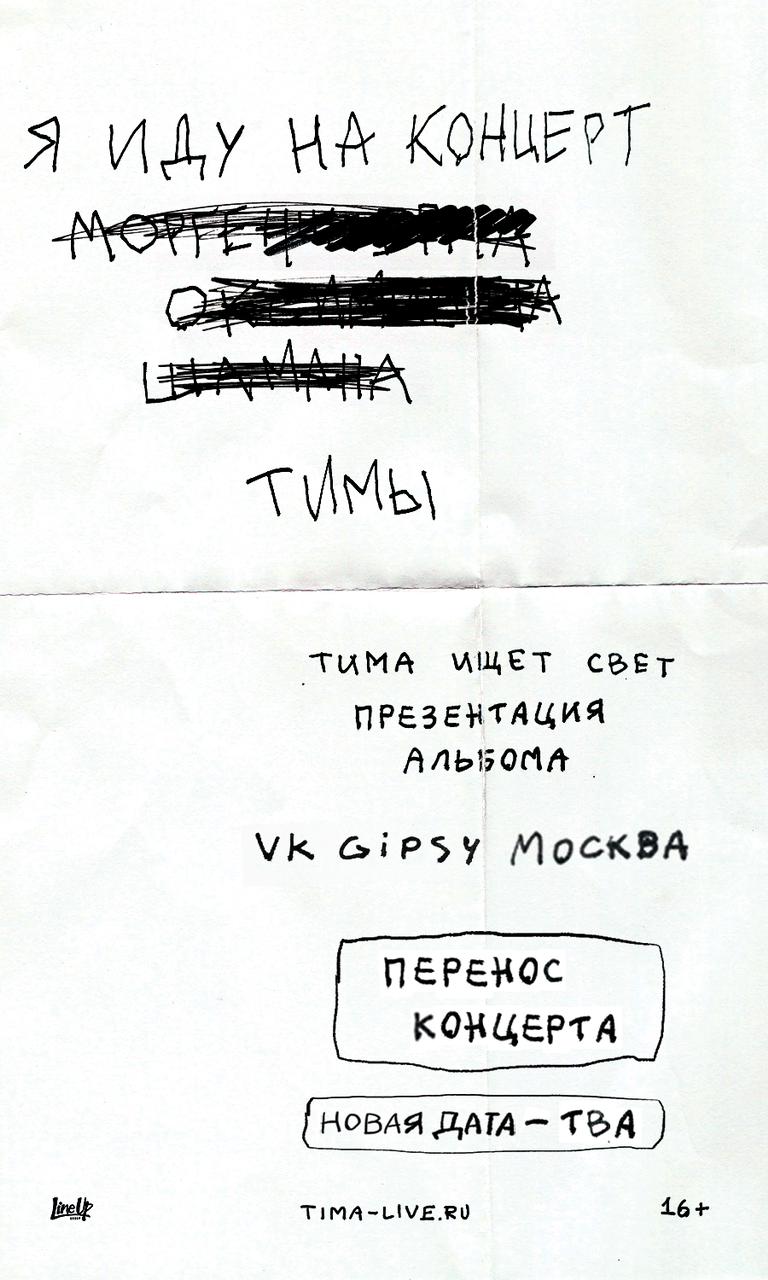 Я ИДУ НА КОНЦЕРТ
ШАМАНА
ТИМЫ
ТИМА ИЩЕТ СВЕТ
ПРЕЗЕНТАЦИЯ
АЛЬБОМА
VK GiPSY МОСКВА
ПЕРЕНОС
КОНЦЕРТА
НОВАЯ ДАТА – TBA
LineUp
TIMA-LIVE.RU
16+